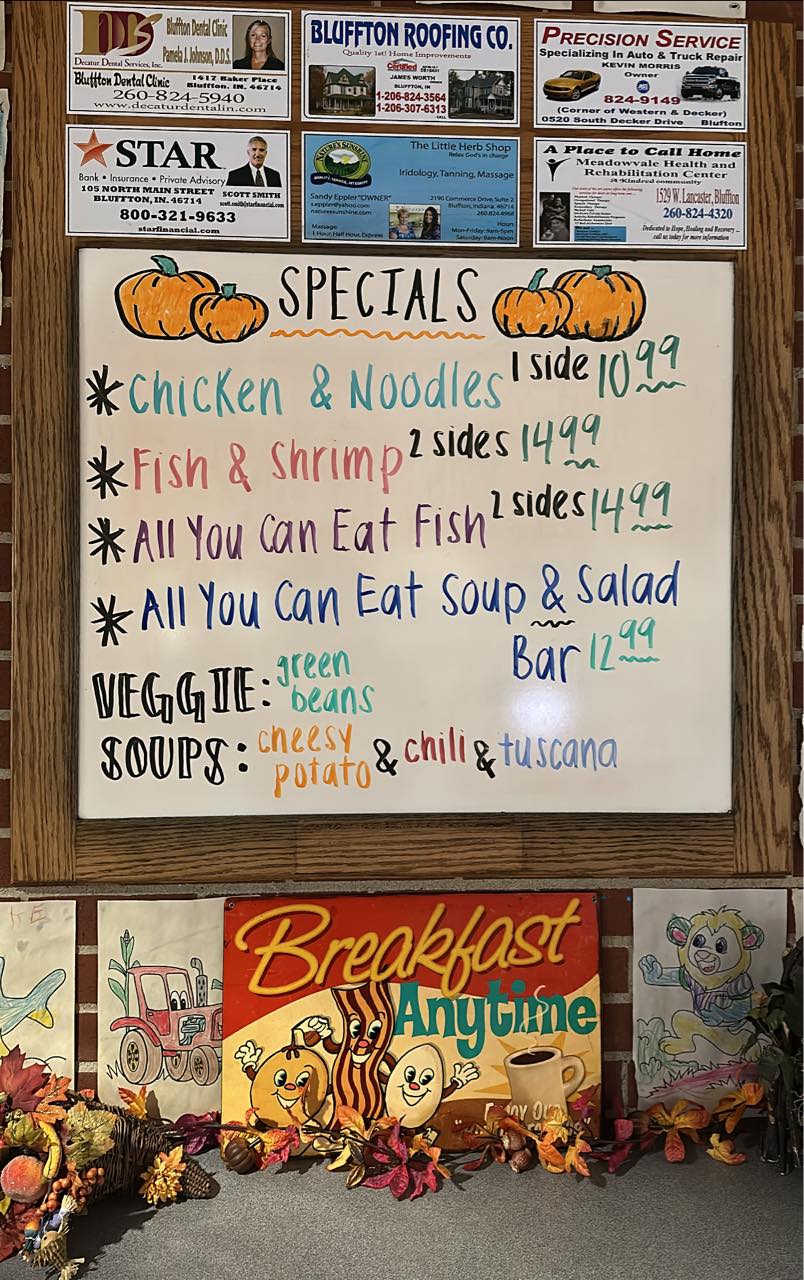 DDS
Decatur Dental Services, Inc.
Bluffton Dental Clinic
Pamela J. Johnson, D.D.S.
Bluffton Dental Clinic
1417 Baker Place
Bluffton, IN. 46714
260-824-5940
www.decaturdentalin.com
BLUFFTON ROOFING CO.
Quality 1st! Home Improvements
Certified
JAMES WORTH
BLUFFTON, IN
1-206-824-3564
1-206-307-6313
PRECISION SERVICE
Specializing In Auto & Truck Repair
KEVIN MORRIS
Owner
824-9149
(Corner of Western & Decker)
0520 South Decker Drive Blufton
STAR
Bank • Insurance • Private Advisory
105 NORTH MAIN STREET
BLUFFTON, IN.46714
SCOTT SMITH
scott.smith@starfinancial.com
800-321-9633
starfinancial.com
NATURE'S SUNSHINE
QUALITY, SERVICE, INTEGRITY
The Little Herb Shop
Relax God's in charge
Iridology, Tanning, Massage
Sandy Eppler "OWNER"
s.eppler@yahoo.com
naturessunshine.com
2190 Commerce Drive, Suite 2
Bluffton, Indiana 46714
260.824.4968
Massage:
1 Hour, Half Hour, Express
Hours
Mon-Friday: 9am-5pm
Saturday: 9am-Noon
A Place to Call Home
Meadowvale Health and
Rehabilitation Center
A Kindred community
1529 W. Lancaster, Bluffton
260-824-4320
Dedicated to Hope, Healing and Recovery ...
call us today for more information
SPECIALS
* Chicken & Noodles 1 side 10 99
* Fish & Shrimp 2 sides 14 99
* All You Can Eat Fish 2 sides 14 99
* All You Can Eat Soup & Salad
Bar 12 99
VEGGIE: green
beans
SOUPS: cheesy
potato & chili & tuscana
KE
Breakfast
Anytime